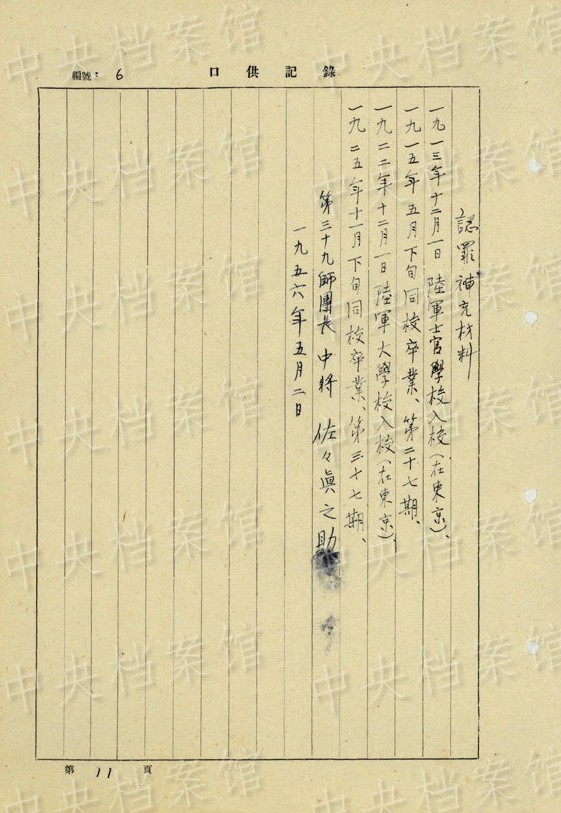 編號：6
口供記錄
認罪補充材料
一九一三年十二月一日 陸軍士官學校入校（在東京）、
一九一五年五月下旬同校卒業、第二十七期、
一九二二年十二月一日陸軍大學校入校（在東京）、
一九二五年十一月下旬同校卒業、第三十七期、
第三十九師團長 中將 佐々眞之助
一九五六年五月二日
第 11 頁
中央档案馆